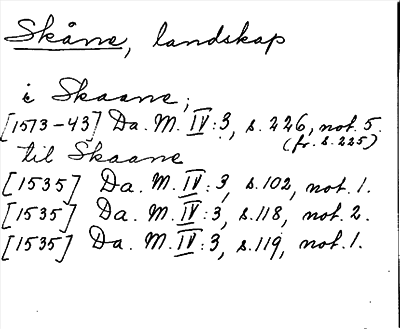 Skåne, landskap
i Skaane;
[1513-43] Da. M. IV:3, s. 226, not. 5.
(fr. s. 225)
til Skaane
[1535] Da. M. IV:3, s.102, not. 1.
[1535] Da. M. IV:3, s.118, not. 2.
[1535] Da. M. IV:3, s.119, not. 1.